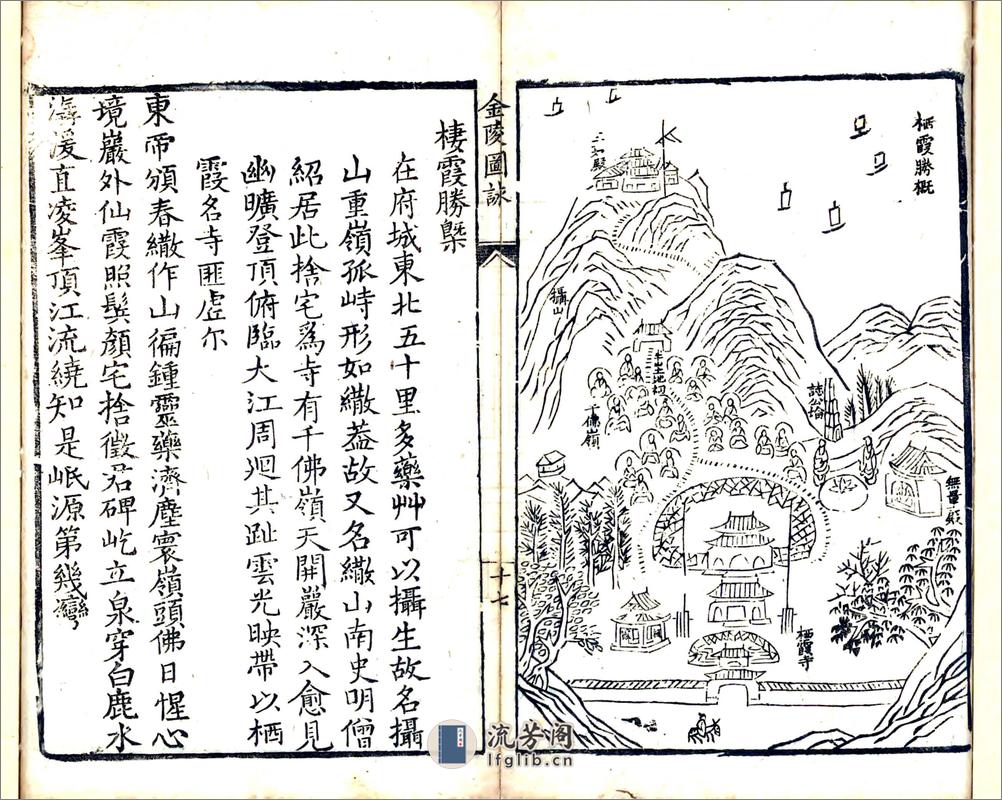 栖霞勝概
三加殿
攝山
千佛嶺
誌公塔
無量殿
栖霞寺
金陵圖詠
十七
棲霞勝槩
在府城東北五十里多藥艸可以攝生故名攝
山重嶺孤峙形如繖葢故又名繖山南史明僧
紹居此捨宅爲寺有千佛嶺天開巖深入愈見
幽曠登頂俯臨大江周迴其趾雲光映帶以栖
霞名寺匪虗尔
東帝頒春繖作山偏鍾靈藥濟塵寰嶺頭佛日惺心
境巖外仙霞照鬂顏宅捨徵君碑屹立泉穿白鹿水
潺湲直凌峯頂江流繞知是岷源第幾灣
流芳阁
lfglib.cn